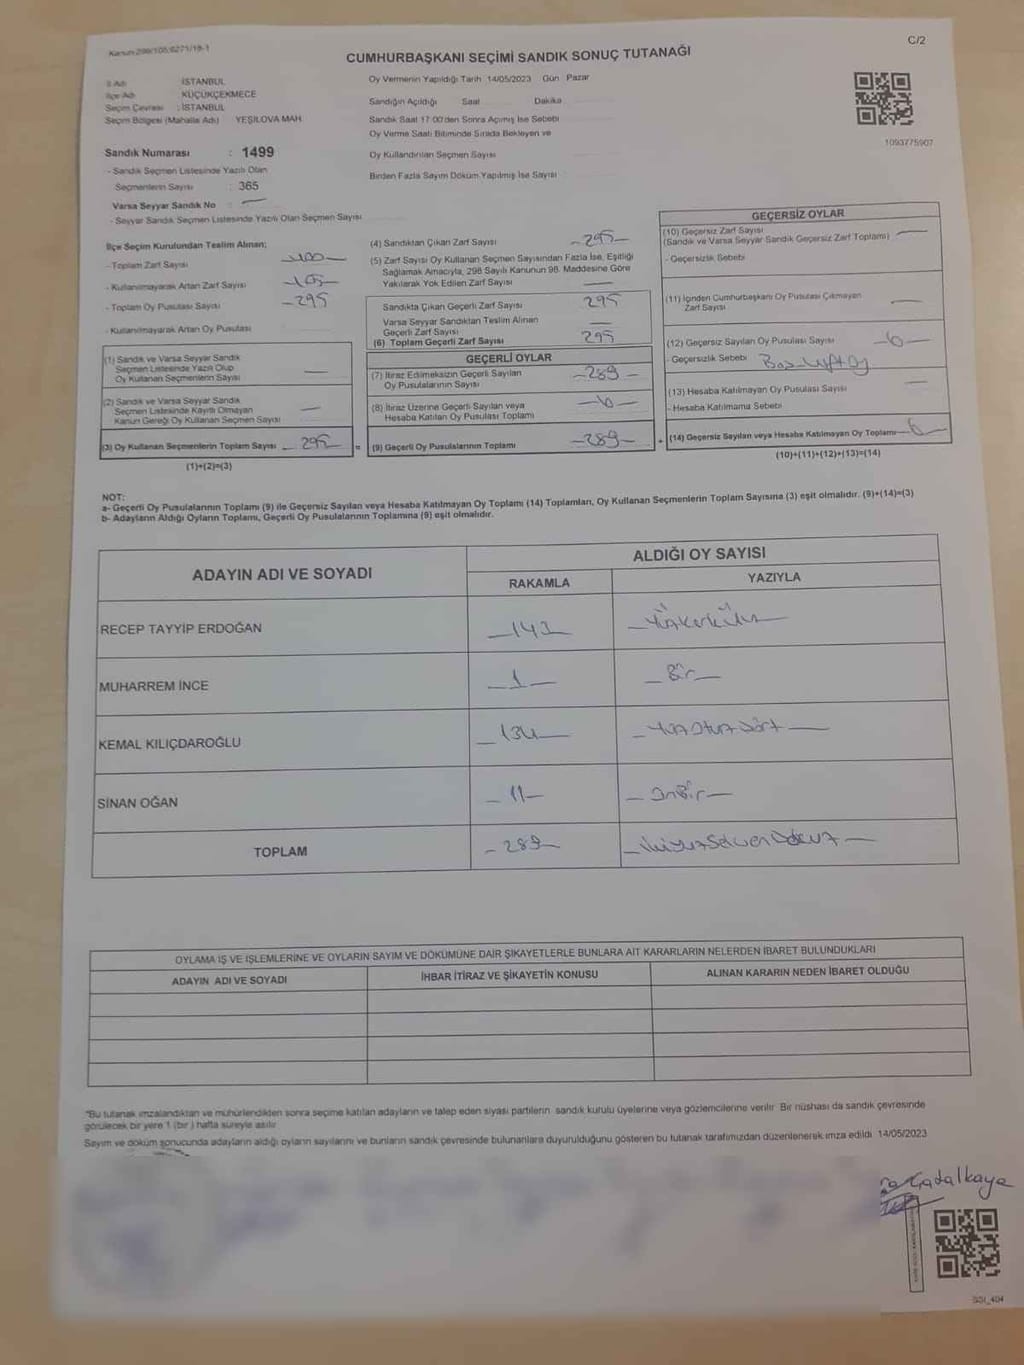 Kanun 298/105;6271/18-1
C/2
CUMHURBAŞKANI SEÇİMİ SANDIK SONUÇ TUTANAĞI
İl Adı : İSTANBUL
İlçe Adı : KÜÇÜKÇEKMECE
Seçim Çevresi : İSTANBUL
Seçim Bölgesi (Mahalle Adı) : YEŞİLOVA MAH.
Oy Vermenin Yapıldığı Tarih 14/05/2023 Gün Pazar
Sandığın Açıldığı Saat Dakika
Sandık Saat 17:00'den Sonra Açımış İse Sebebi
Oy Verme Saati Bitiminde Sırada Bekleyen ve
Oy Kullandırılan Seçmen Sayısı
Birden Fazla Sayım Döküm Yapılmış İse Sayısı
1093775907
Sandık Numarası : 1499
- Sandık Seçmen Listesinde Yazılı Olan
Seçmenlerin Sayısı : 365
Varsa Seyyar Sandık No : —
- Seyyar Sandık Seçmen Listesinde Yazılı Olan Seçmen Sayısı
İlçe Seçim Kurulundan Teslim Alınan;
- Toplam Zarf Sayısı 400
- Kullanılmayarak Artan Zarf Sayısı 105
- Toplam Oy Pusulası Sayısı 295
- Kullanılmayarak Artan Oy Pusulası
(1) Sandık ve Varsa Seyyar Sandık
Seçmen Listesinde Yazılı Olup
Oy Kullanan Seçmenlerin Sayısı —
(2) Sandık ve Varsa Seyyar Sandık
Seçmen Listesinde Kayıtlı Olmayan
Kanun Gereği Oy Kullanan Seçmen Sayısı —
(3) Oy Kullanan Seçmenlerin Toplam Sayısı 295
(1)+(2)=(3)
(4) Sandıktan Çıkan Zarf Sayısı 295
(5) Zarf Sayısı Oy Kullanan Seçmen Sayısından Fazla İse, Eşitliği
Sağlamak Amacıyla, 298 Sayılı Kanunun 98. Maddesine Göre
Yakılarak Yok Edilen Zarf Sayısı —
Sandıkta Çıkan Geçerli Zarf Sayısı 295
Varsa Seyyar Sandıktan Teslim Alınan
Geçerli Zarf Sayısı —
(6) Toplam Geçerli Zarf Sayısı 295
GEÇERLİ OYLAR
(7) İtiraz Edilmeksizin Geçerli Sayılan
Oy Pusulalarının Sayısı 289
(8) İtiraz Üzerine Geçerli Sayılan veya
Hesaba Katılan Oy Pusulası Toplamı
= (9) Geçerli Oy Pusulalarının Toplamı 289
GEÇERSİZ OYLAR
(10) Geçersiz Zarf Sayısı —
(Sandık ve Varsa Seyyar Sandık Geçersiz Zarf Toplamı)
- Geçersizlik Sebebi
(11) İçinden Cumhurbaşkanı Oy Pusulası Çıkmayan
Zarf Sayısı —
(12) Geçersiz Sayılan Oy Pusulası Sayısı 6
- Geçersizlik Sebebi
(13) Hesaba Katılmayan Oy Pusulası Sayısı —
- Hesaba Katılmama Sebebi
+ (14) Geçersiz Sayılan veya Hesaba Katılmayan Oy Toplamı 6
(10)+(11)+(12)+(13)=(14)
NOT:
a- Geçerli Oy Pusulalarının Toplamı (9) ile Geçersiz Sayılan veya Hesaba Katılmayan Oy Toplamı (14) Toplamları, Oy Kullanan Seçmenlerin Toplam Sayısına (3) eşit olmalıdır. (9)+(14)=(3)
b- Adayların Aldığı Oyların Toplamı, Geçerli Oy Pusulalarının Toplamına (9) eşit olmalıdır.
ADAYIN ADI VE SOYADI
ALDIĞI OY SAYISI
RAKAMLA YAZIYLA
RECEP TAYYİP ERDOĞAN 143 Yüzkırküç
MUHARREM İNCE 1 Bir
KEMAL KILIÇDAROĞLU 134 Yüz Otuz Dört
SİNAN OĞAN 11 Onbir
TOPLAM 289 İkiyüzSeksenDokuz
OYLAMA İŞ VE İŞLEMLERİNE VE OYLARIN SAYIM VE DÖKÜMÜNE DAİR ŞİKAYETLERLE BUNLARA AİT KARARLARIN NELERDEN İBARET BULUNDUKLARI
ADAYIN ADI VE SOYADI İHBAR İTİRAZ VE ŞİKAYETİN KONUSU ALINAN KARARIN NEDEN İBARET OLDUĞU
"Bu tutanak imzalandıktan ve mühürlendikten sonra seçime katılan adayların ve talep eden siyasi partilerin sandık kurulu üyelerine veya gözlemcilerine verilir. Bir nüshası da sandık çevresinde
görülecek bir yere 1 (bir ) hafta süreyle asılır.
Sayım ve döküm sonucunda adayların aldığı oyların sayılarını ve bunların sandık çevresinde bulunanlara duyurulduğunu gösteren bu tutanak tarafımızdan düzenlenerek imza edildi 14/05/2023
Çatalkaya